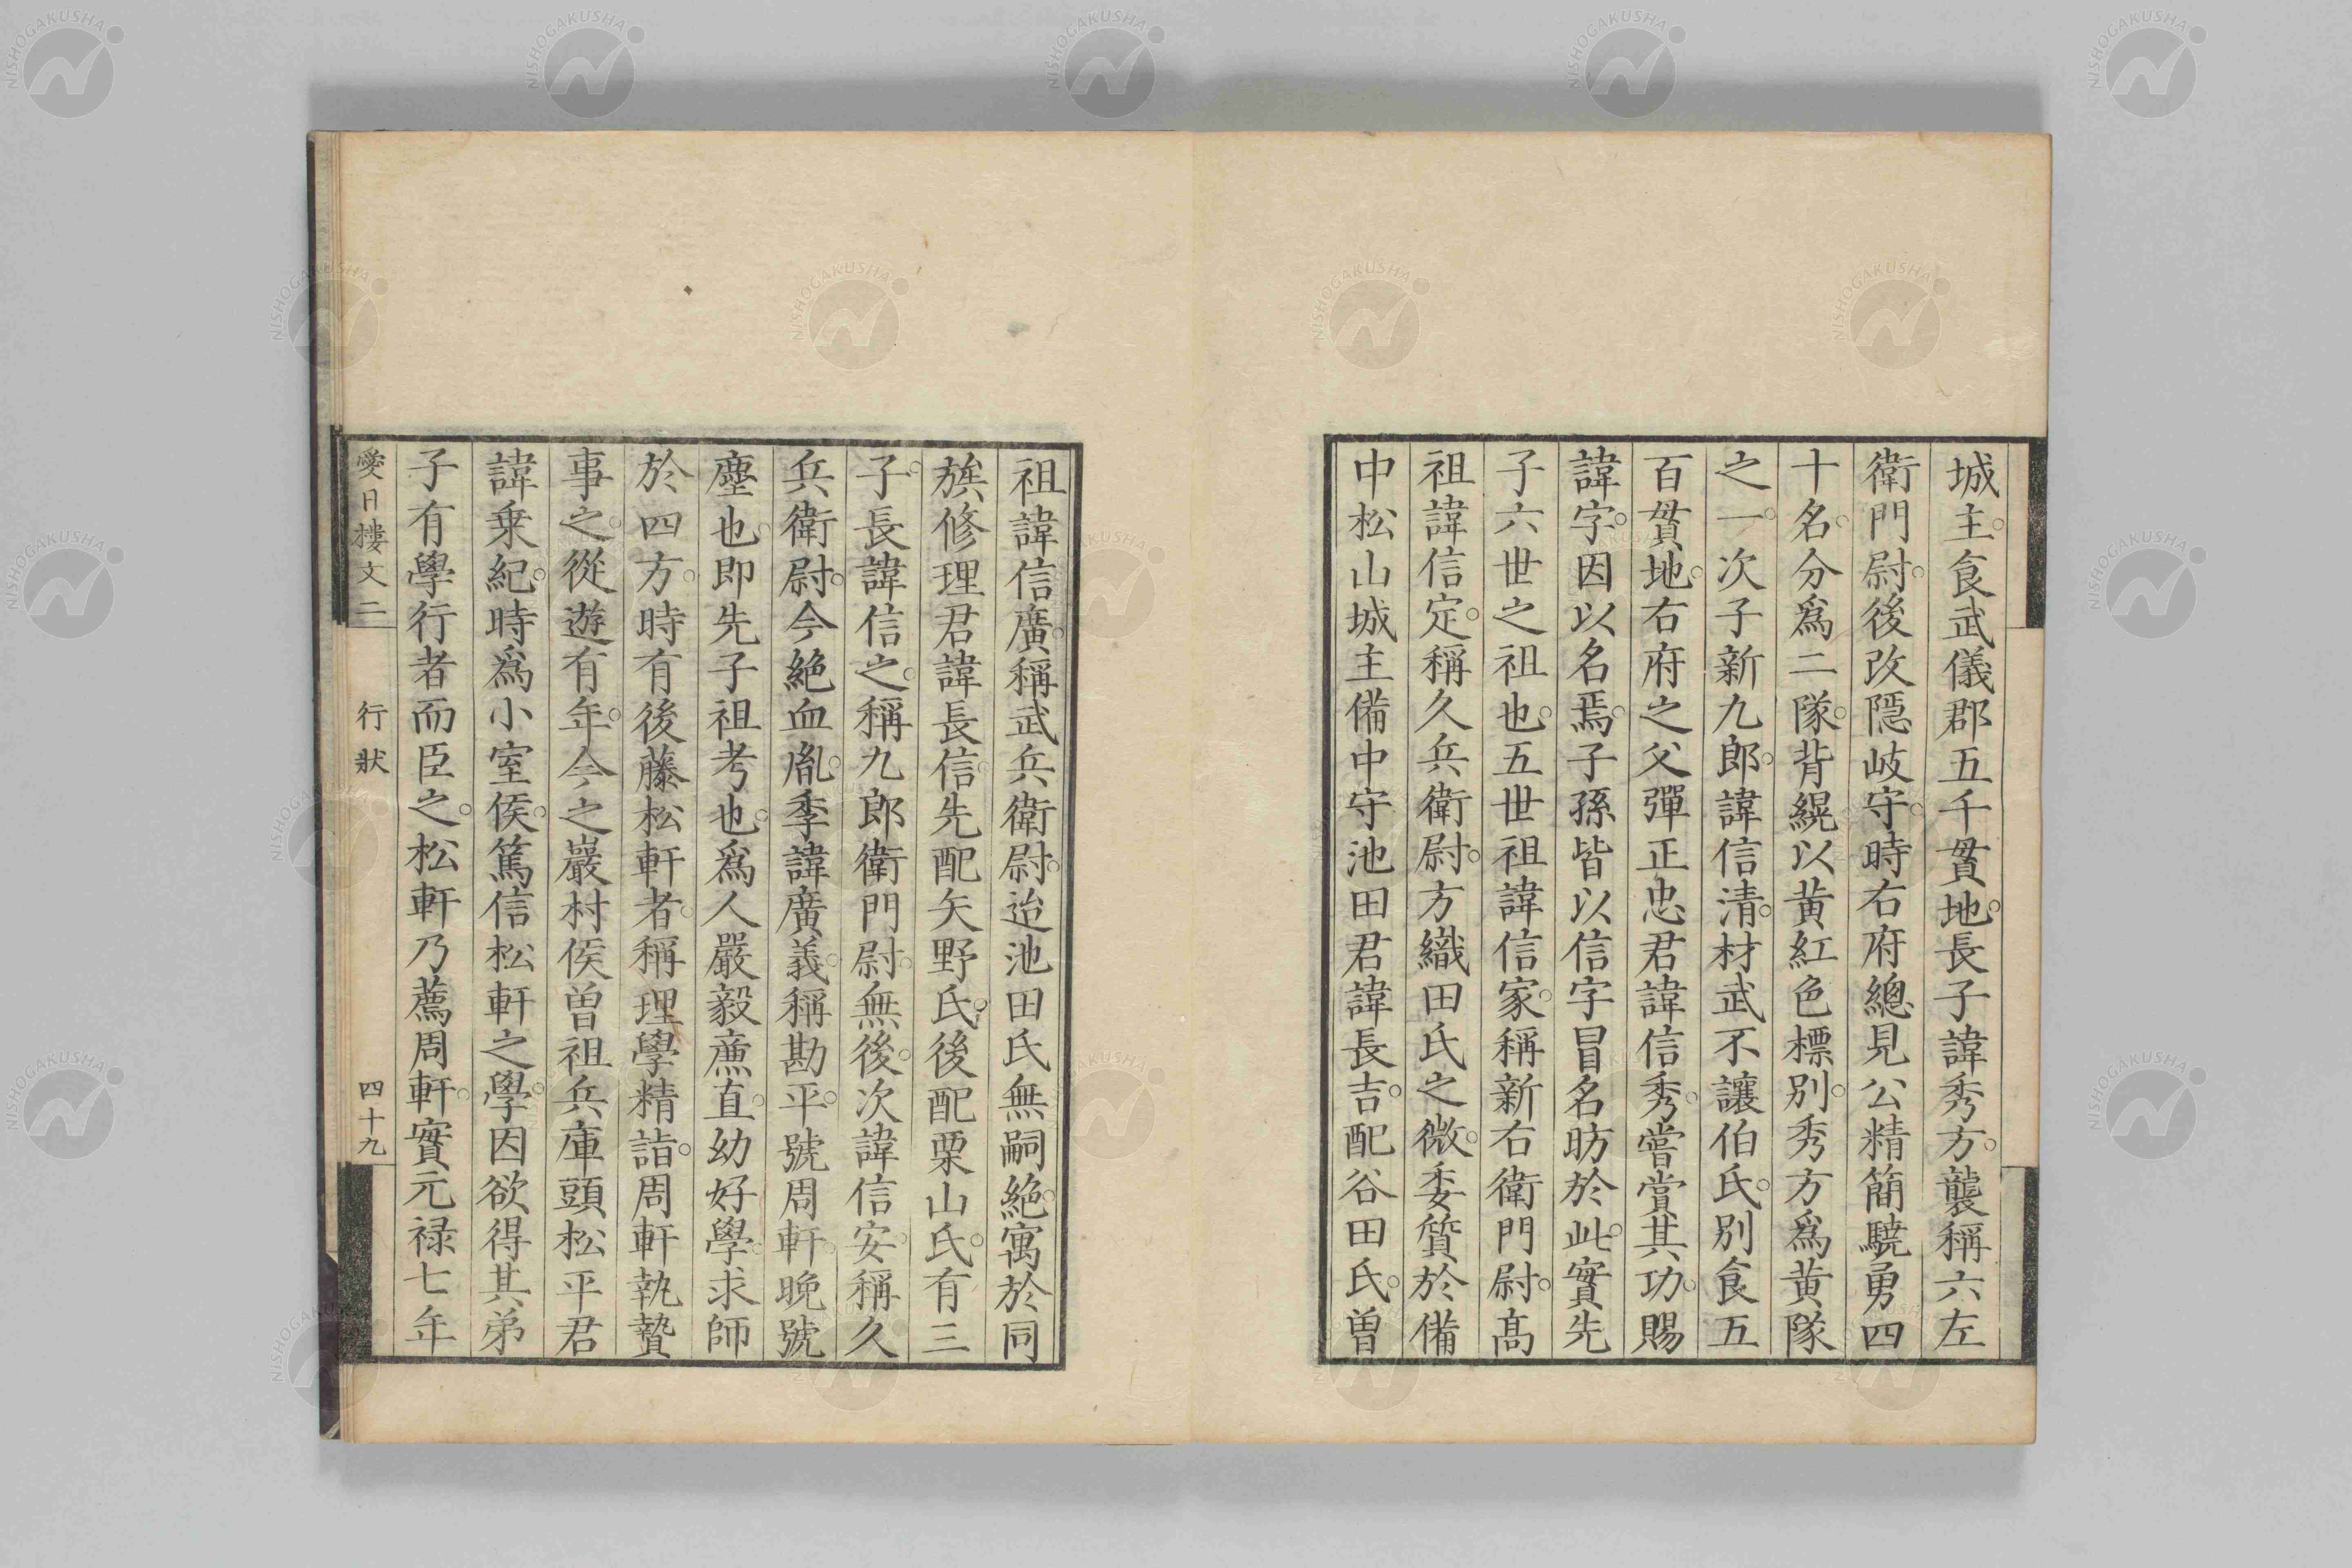 城主。食武儀郡五千貫地。長子諱秀方。襲稱六左
衛門尉。後改隱岐守。時右府總見公精簡驍勇四
十名。分爲二隊。背縨以黄紅色標別。秀方爲黄隊
之一。次子新九郎。諱信清。材武不讓伯氏。別食五
百貫地。右府之父彈正忠君諱信秀。嘗賞其功。賜
諱字。因以名焉。子孫皆以信字冒名昉於此。實先
子六世之祖也。五世祖諱信家。稱新右衛門尉。髙
祖諱信定。稱久兵衛尉。方織田氏之微。委質於備
中松山城主備中守池田君諱長吉。配谷田氏。曽
祖諱信廣。稱武兵衛尉。迨池田氏無嗣絶。寓於同
族修理君諱長信。先配矢野氏。後配栗山氏。有三
子。長諱信之。稱九郎衛門尉。無後。次諱信安。稱久
兵衛尉。今絶血胤。季諱廣義。稱勘平。號周軒。晩號
塵也。即先子祖考也。爲人嚴毅亷直。幼好學。求師
於四方。時有後藤松軒者。稱理學精詣。周軒執贄
事之。從遊有年。今之巖村侯曽祖兵庫頭松平君
諱乗紀。時爲小室侯。篤信松軒之學。因欲得其弟
子有學行者而臣之。松軒乃薦周軒。實元禄七年
愛日樓文二　行狀　四十九
NISHOGAKUSHA